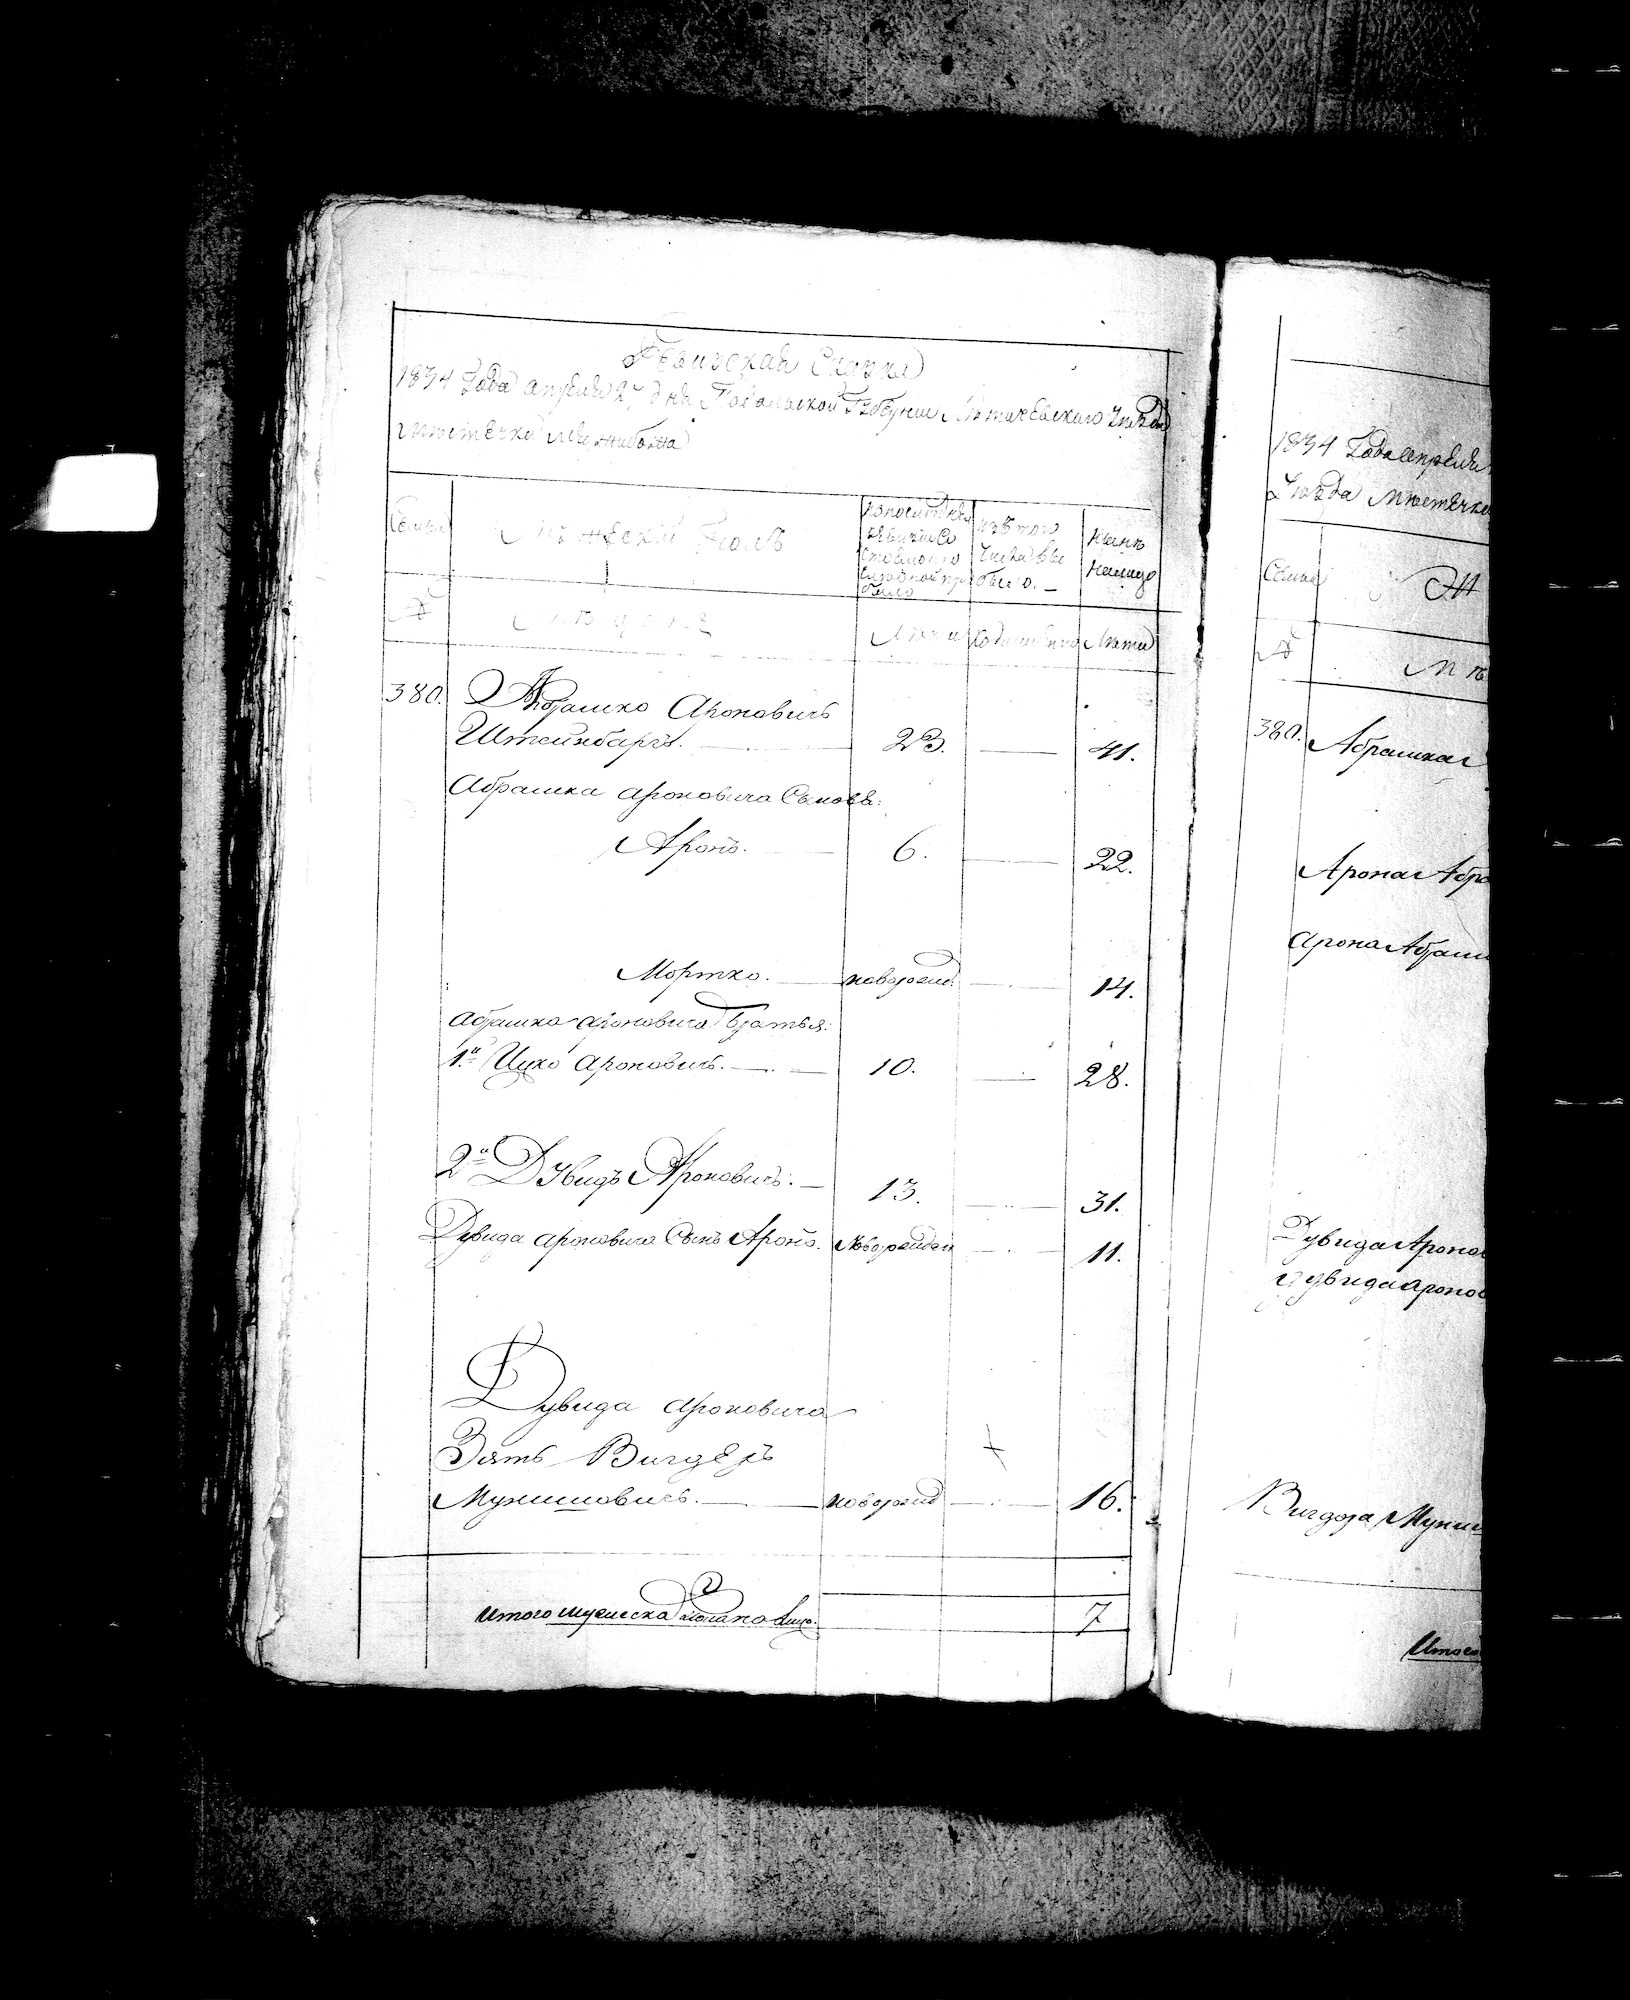 Ревизская Сказка
1834 Года апреля 27 дня Подольской Губернии Летичевского Уезда
местечка Межибожа
Семьи
Мужеской Полъ
По последней
ревизiи
состояло и
после оной при
было
Изъ того
числа вы
было.
Ныне
на лицо
№
Лета
Лета
380. Абрашко Ароновичъ
Штейнбаргъ. 23. 41.
Абрашка Ароновича Сыновья:
Аронъ. 6. 22.
Мортко. новорожд: 14.
Абрашка Ароновича Братья:
1й Ицко Ароновичъ. 10. 28.
2й Дувидъ Ароновичъ. 13. 31.
Дувида Ароновича Сынъ Аронъ. Новорожден 11.
Дувида Ароновича
Зять Вигдеръ
Мунишовичъ. новорожд 16.
Итого мужеска пола на лицо. 7
1834 Года апреля
Уезда местечка
Семьи
Ж
№
380. Абрашка
Арона Абра
Арона Абраш
Дувида Аронов
Дувида Аронов
Вигдора Муниш
Итого